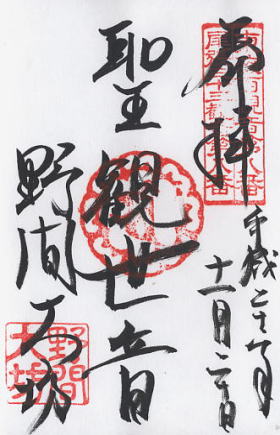 奉拝
平成二十六年
十一月二十日
聖観世音
野間大坊
野間
大坊